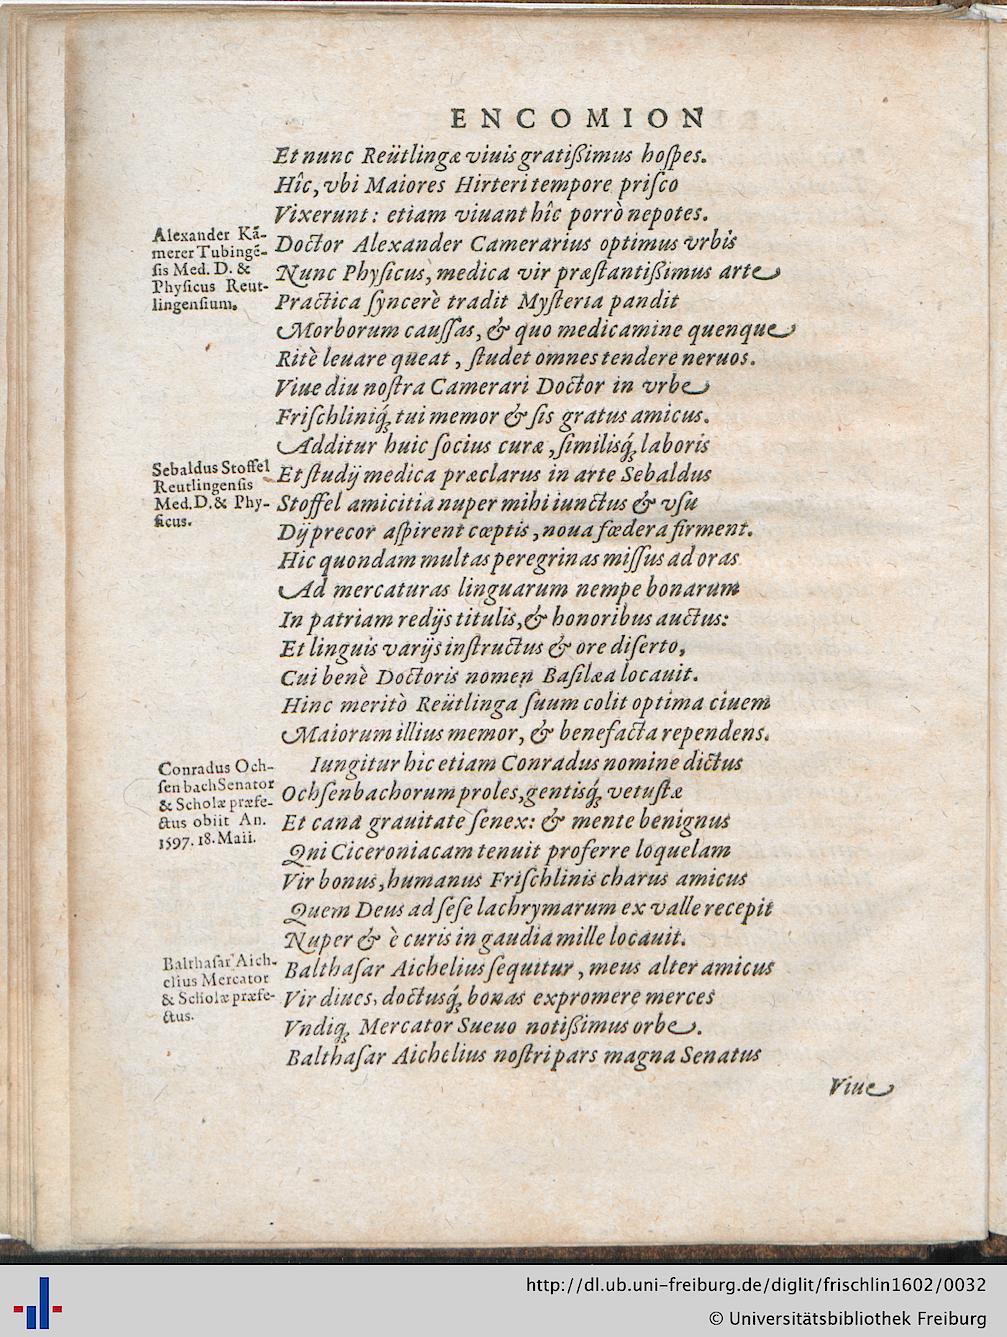 ENCOMION
Et nunc Reütlingæ viuis gratißimus hoſpes.
Hîc, vbi Maiores Hirteri tempore priſco
Vixerunt: etiam viuant hîc porrò nepotes.
Alexander Kā-
merer Tubingē-
ſis Med. D. &
Phyſicus Reut-
lingenſium.
Doctor Alexander Camerarius optimus vrbis
Nunc Phyſicus, medica vir præſtantißimus arte
Practica ſyncerè tradit Myſteria pandit
Morborum cauſſas, & quo medicamine quenque
Ritè leuare queat, ſtudet omnes tendere neruos.
Viue diu noſtra Camerari Doctor in vrbe
Friſchliniq́; tui memor & ſis gratus amicus.
Additur huic ſocius curæ, ſimilisq́; laboris
Sebaldus Stoffel
Reutlingenſis
Med. D. & Phy-
ſicus.
Et ſtudij medica præclarus in arte Sebaldus
Stoffel amicitia nuper mihi iunctus & vſu
Dij precor aſpirent cœptis, noua fœdera firment.
Hic quondam multas peregrinas miſſus ad oras
Ad mercaturas linguarum nempe bonarum
In patriam redijs titulis, & honoribus auctus:
Et linguis varijs inſtructus & ore diſerto,
Cui benè Doctoris nomen Baſilæa locauit.
Hinc meritò Reütlinga ſuum colit optima ciuem
Maiorum illius memor, & benefacta rependens.
Conradus Och-
ſenbach Senator
& Scholæ præfe-
ctus obiit An.
1597. 18. Maii.
Iungitur hic etiam Conradus nomine dictus
Ochſenbachorum proles, gentisq́; vetuſtæ
Et cana grauitate ſenex: & mente benignus
Qni Ciceroniacam tenuit proferre loquelam
Vir bonus, humanus Friſchlinis charus amicus
Quem Deus ad ſeſe lachrymarum ex valle recepit
Nuper & è curis in gaudia mille locauit.
Balthaſar Aich-
elius Mercator
& Scholæ præfe-
ctus.
Balthaſar Aichelius ſequitur, meus alter amicus
Vir diues, doctusq́; bonas expromere merces
Vndiq; Mercator Sueuo notißimus orbe.
Balthaſar Aichelius noſtri pars magna Senatus
Viue
http://dl.ub.uni-freiburg.de/diglit/frischlin1602/0032
© Universitätsbibliothek Freiburg